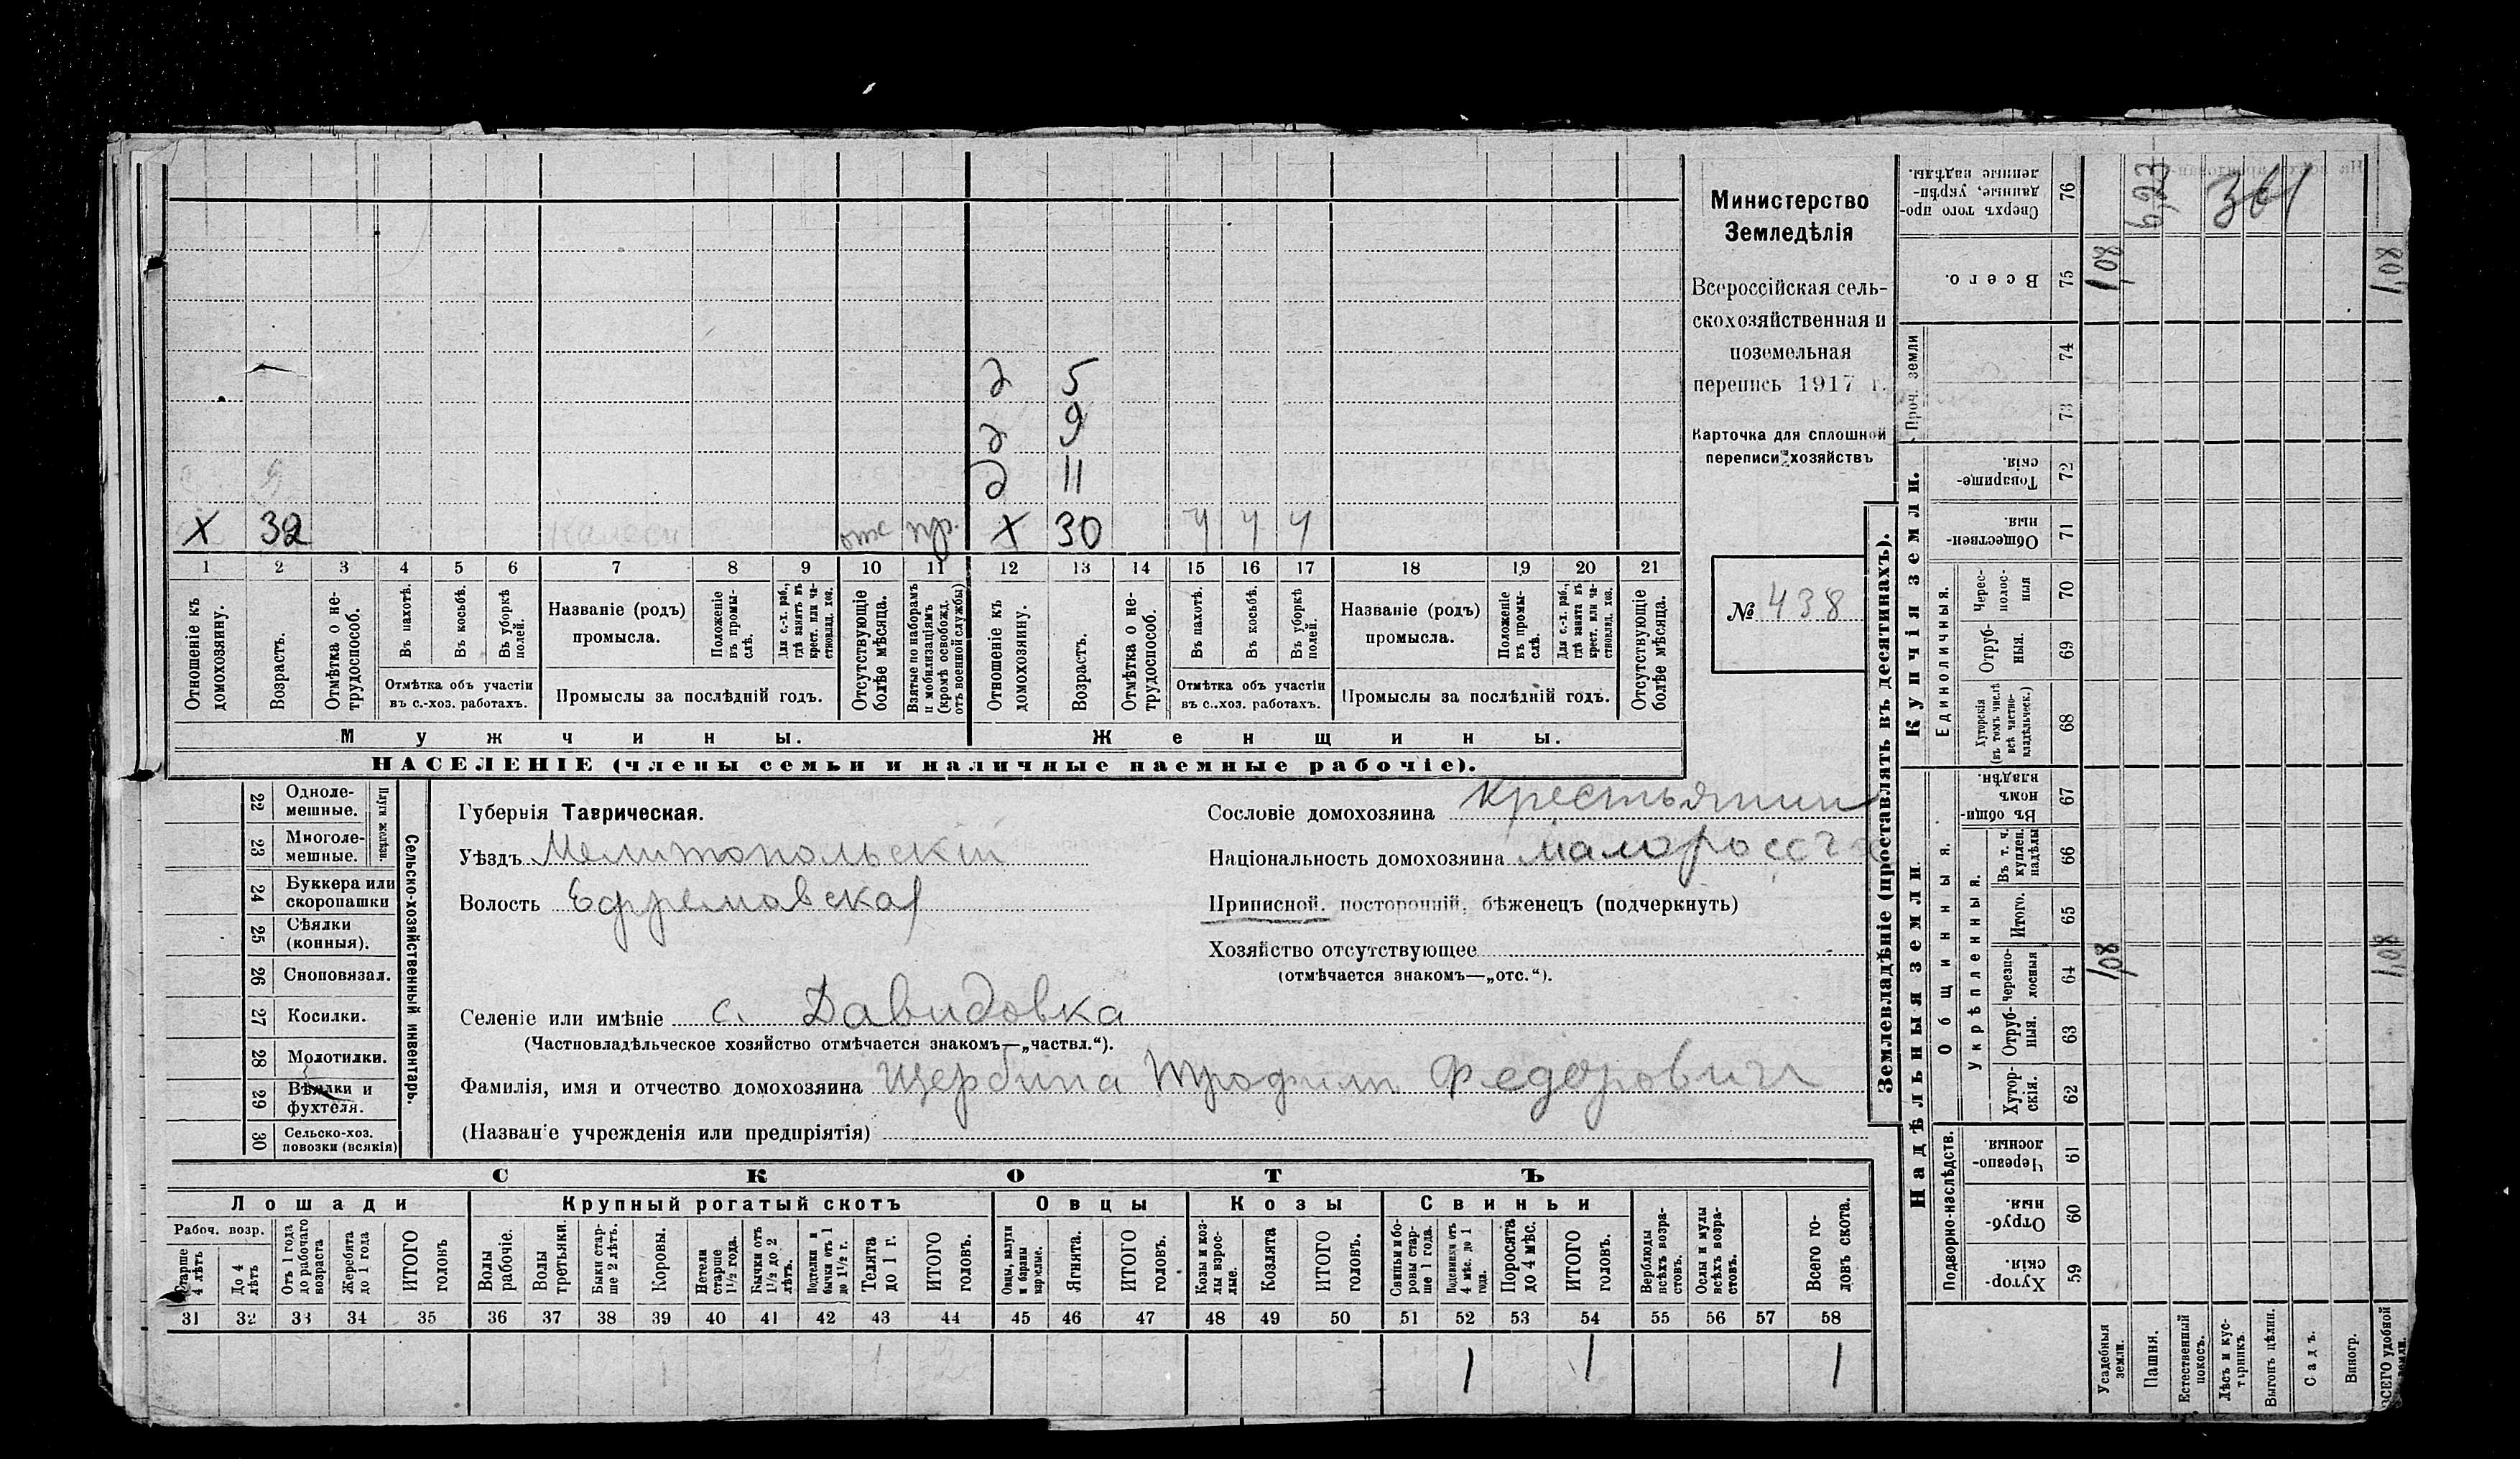 Министерство
Земледѣлія
Всероссійская сель-
скохозяйственная и
поземельная
перепись 1917 г.
Карточка для сплошной
переписи хозяйствъ
№ 438
д 5
д 9
д 11
Х 32 отс пр. Х 30 ч ч ч
1 2 3 4 5 6 7 8 9 10 11 12 13 14 15 16 17 18 19 20 21
Отношеніе къ домохозяину.
Возрастъ.
Отмѣтка о не-трудоспособ.
Въ пахотѣ.
Въ косьбѣ.
Въ уборкѣ полей.
Отмѣтка объ участіи
въ с.-хоз. работахъ.
Названіе (родъ)
промысла.
Положеніе въ промы-слѣ.
Для с.-х. раб., гдѣ занятъ въ крест. или ча-стновлад. хоз.
Промыслы за послѣдній годъ.
Отсутствующіе болѣе мѣсяца.
Взятые по наборамъ и мобилизаціямъ (кромѣ освобожд. отъ военной службы)
Отношеніе къ домохозяину.
Возрастъ.
Отмѣтка о не-трудоспособ.
Въ пахотѣ.
Въ косьбѣ.
Въ уборкѣ полей.
Отмѣтка объ участіи
въ с.-хоз. работахъ.
Названіе (родъ)
промысла.
Положеніе въ промы-слѣ.
Для с.-х. раб., гдѣ занята въ крест. или ча-стновлад. хоз.
Промыслы за послѣдній годъ.
Отсутствующіе болѣе мѣсяца.
Мужчины. Женщины.
НАСЕЛЕНІЕ (члены семьи и наличные наемные рабочіе).
Сельско-хозяйственный инвентарь.
Плуги желѣзн.
22 Одноле-мешные.
23 Многоле-мешные.
24 Буккера или скоропашки
25 Сѣялки (конныя).
26 Сноповязал.
27 Косилки.
28 Молотилки.
29 Вѣялки и фухтеля.
30 Сельско-хоз. повозки (всякія)
Губернія Таврическая.
Уѣздъ Мелитопольскій
Волость Ефремовская
Сословіе домохозяина крестьянин
Національность домохозяина малоросс
Приписной, посторонній, бѣженецъ (подчеркнуть)
Хозяйство отсутствующее
(отмѣчается знакомъ—„отс.“).
Селеніе или имѣніе с. Давидовка
(Частновладѣльческое хозяйство отмѣчается знакомъ—„частвл.“).
Фамилія, имя и отчество домохозяина Щербина Трофим Федорович
(Названіе учрежденія или предпріятія)
СКОТЪ
Лошади Крупный рогатый скотъ Овцы Козы Свиньи
Рабоч. возр.
Старше 4 лѣтъ
До 4 лѣтъ
Отъ 1 года до рабочаго возраста
Жеребята до 1 года
ИТОГО головъ
Волы рабочіе.
Волы третьяки.
Быки стар-ше 2 лѣтъ.
Коровы.
Нетели старше 1½ года.
Бычки отъ 1½ до 2 лѣтъ.
Подтелки и бычки отъ 1 до 1½ г.
Телята до 1 г.
ИТОГО головъ.
Овцы, валухи и бараны взрослые.
Ягнята.
ИТОГО головъ.
Козы и коз-лы взрос-лые.
Козлята
ИТОГО головъ.
Свиньи и бо-ровы стар-ше 1 года.
Подсвинки отъ 4 мѣс. до 1 года.
Поросята до 4 мѣс.
ИТОГО головъ.
Верблюды всѣхъ возра-стовъ.
Ослы и мулы всѣхъ возра-стовъ.
Всего го-ловъ скота.
31 32 33 34 35 36 37 38 39 40 41 42 43 44 45 46 47 48 49 50 51 52 53 54 55 56 57 58
1 1 1
Землевладѣніе (проставлять въ десятинахъ).
Надѣльныя земли.
Купчія земли.
Проч. земли
Подворно-наслѣдств.
Общинныя.
Укрѣпленныя.
Единоличныя.
Хутор-скія. 59
Отруб-ныя. 60
Черезпо-лосныя. 61
Хутор-скія. 62
Отруб-ныя. 63
черезпо-лосныя 64
Итого. 65
Въ т. ч. куплен. надѣлы 66
Въ общи-номъ владѣн. 67
Хуторскія (въ томъ числѣ всѣ частно-владѣльческ.) 68
Отруб-ныя. 69
Черес-полос-ныя 70
Обществен-ныя. 71
Товарище-скія. 72
73
74
Всего. 75
Сверхъ того про-данные, укрѣп-ленные надѣлы. 76
Усадебныя земли.
1,08 1,08
Пашня.
6,23
Естественный покосъ.
Лѣсъ и кус-тарникъ.
361
Выгонъ цѣлин.
Садъ.
Виногр.
ВСЕГО удобной земли.
1,08 1,08